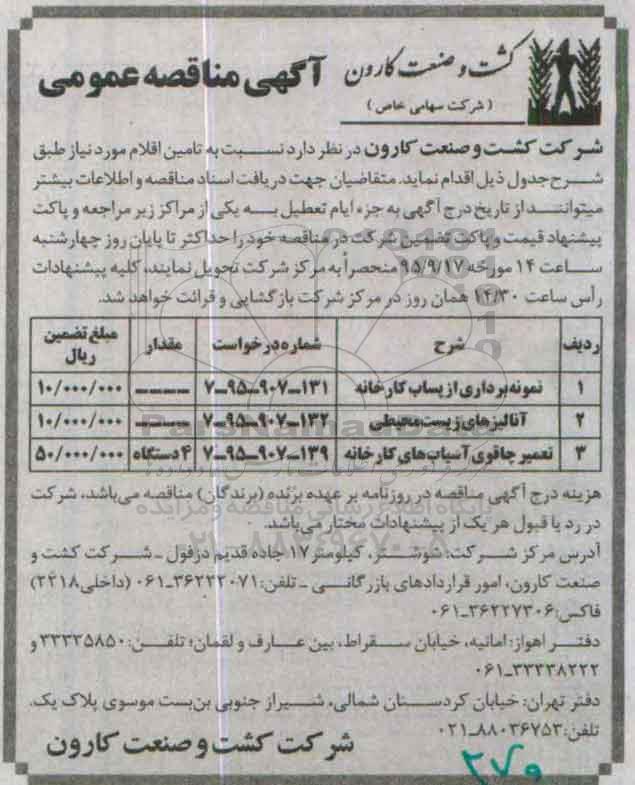 کشت و صنعت کارون
( شرکت سهامی خاص )
آگهی مناقصه عمومی
شرکت کشت و صنعت کارون در نظر دارد نسبت به تامین اقلام مورد نیاز طبق
شرح جدول ذیل اقدام نماید. متقاضیان جهت دریافت اسناد مناقصه و اطلاعات بیشتر
میتوانند از تاریخ درج آگهی به جزء ایام تعطیل به یکی از مراکز زیر مراجعه و پاکت
پیشنهاد قیمت و پاکت تضمین شرکت در مناقصه خود را حداکثر تا پایان روز چهارشنبه
ساعت ۱۴ مورخه ۹۵/۹/۱۷ منحصراً به مرکز شرکت تحویل نمایند، کلیه پیشنهادات
رأس ساعت ۱۴/۳۰ همان روز در مرکز شرکت بازگشایی و قرائت خواهد شد.
ردیف شرح شماره درخواست مقدار مبلغ تضمین ریال
۱ نمونه برداری از پساب کارخانه ۷-۹۵-۹۰۷-۱۳۱ ---- ۱۰/۰۰۰/۰۰۰
۲ آنالیزهای زیست محیطی ۷-۹۵-۹۰۷-۱۳۲ ---- ۱۰/۰۰۰/۰۰۰
۳ تعمیر چاقوی آسیاب های کارخانه ۷-۹۵-۹۰۷-۱۳۹ ۴ دستگاه ۵۰/۰۰۰/۰۰۰
هزینه درج آگهی مناقصه در روزنامه بر عهده برنده (برندگان) مناقصه می‌باشد، شرکت
در رد یا قبول هر یک از پیشنهادات مختار می‌باشد.
آدرس مرکز شرکت: شوشتر، کیلومتر ۱۷ جاده قدیم دزفول - شرکت کشت و
صنعت کارون، امور قراردادهای بازرگانی - تلفن: ۳۶۲۲۲۰۷۱-۰۶۱ (داخلی ۲۲۱۸)
فاکس: ۳۶۲۲۷۳۰۶-۰۶۱
دفتر اهواز: امانیه، خیابان سقراط، بین عارف و لقمان؛ تلفن: ۳۳۳۳۵۸۵۰ و
۳۳۳۳۸۲۲۲-۰۶۱
دفتر تهران: خیابان کردستان شمالی، شیراز جنوبی بن‌بست موسوی پلاک یک.
تلفن: ۸۸۰۳۶۷۵۳-۰۲۱
شرکت کشت و صنعت کارون